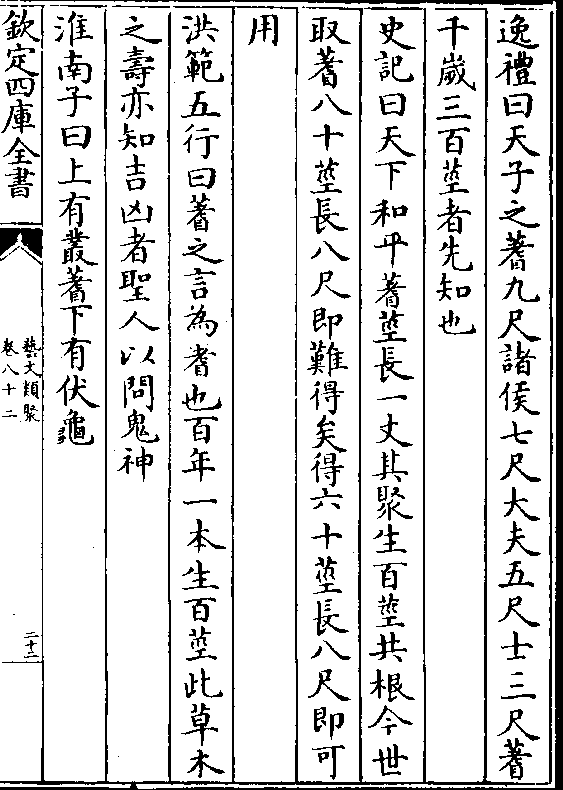 逸禮曰天子之蓍九尺諸侯七尺大夫五尺士三尺蓍
千歲三百莖者先知也
史記曰天下和平蓍莖長一丈其聚生百莖共根今世
取蓍八十莖長八尺即難得矣得六十莖長八尺即可
用
洪範五行曰蓍之言為耆也百年一本生百莖此草木
之壽亦知吉凶者聖人以問鬼神
淮南子曰上有叢蓍下有伏龜
欽定四庫全書
藝文類聚
卷八十二
二十二